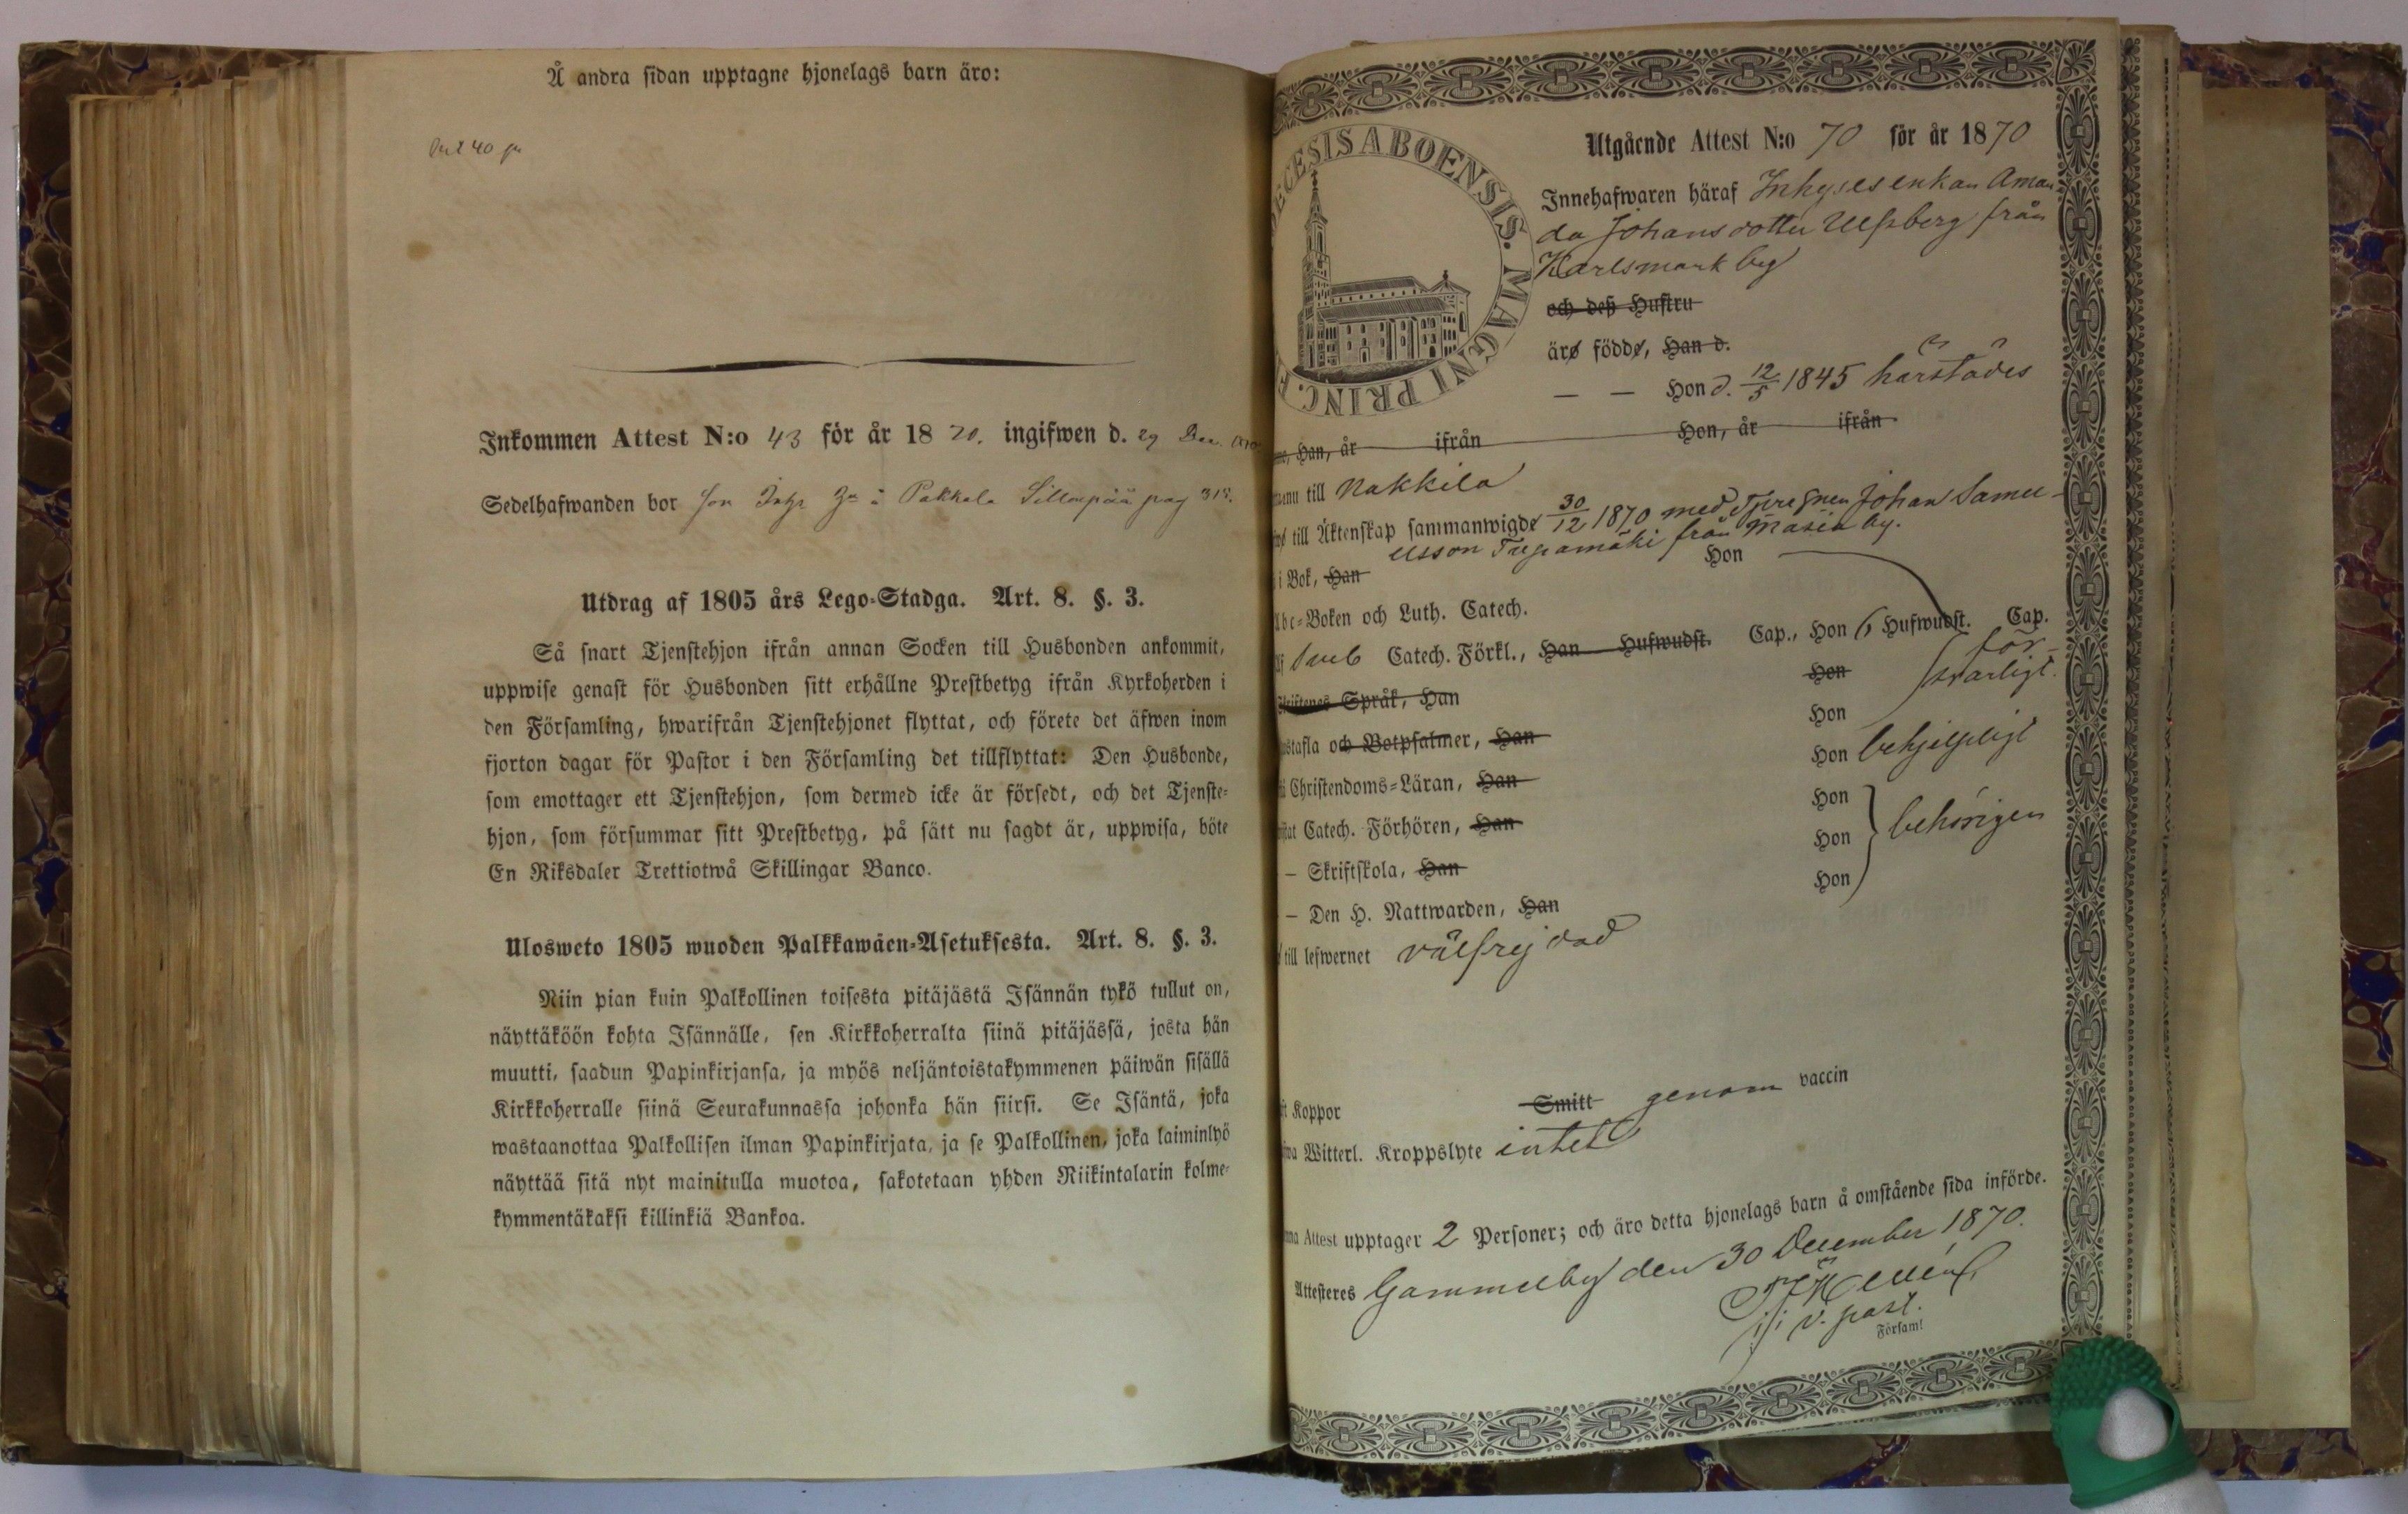 Å andra sidan upptagne hjonelags barn äro:
40
Inkommen Attest N:o 43 för år 1870. ingifwen d. 29 Dec.
Sedelhafwanden bor Pakkala pag 315.
Utdrag af 1805 års Lego-Stadga. Art. 8. §. 3.
Så snart Tjenstehjon ifrån annan Socken till Husbonden ankommit,
uppwise genast för Husbonden sitt erhållne Prestbetyg ifrån Kyrkoherden i
den Församling, hwarifrån Tjenstehjonet flyttat, och förete det äfwen inom
fjorton dagar för Pastor i den Församling det tillflyttat: Den Husbonde,
som emottager ett Tjenstehjon, som dermed icke är försedt, och det Tjenste-
hjon, som försummar sitt Prestbetyg, på sätt nu sagdt är, uppwisa, böte
En Riksdaler Trettiotwå Skillingar Banco.
Ulosweto 1805 wuoden Palkkawäen-Asetuksesta. Art. 8. §. 3.
Niin pian kuin Palkollinen toisesta pitäjästä Isännän tykö tullut on,
näyttäköön kohta Isännälle, sen Kirkkoherralta siinä pitäjässä, josta hän
muutti, saadun Papinkirjansa, ja myös neljäntoistakymmenen päiwän sisällä
Kirkkoherralle siinä Seurakunnassa johonka hän siirsi. Se Isäntä, joka
wastaanottaa Palkollisen ilman Papinkirjata, ja se Palkollinen, joka laiminlyö
näyttää sitä nyt mainitulla muotoa, sakotetaan yhden Riikintalarin kolme-
kymmentäkaksi killinkiä Bankoa.
ECESIS ABOENSIS. MAGNI PRINC. F
Utgående Attest N:o 70 för år 1870
Innehafwaren häraf Inhysesenkan Aman-
da Johansdotter Ulfsberg från
Karlsmark by
och deß Hustru
äro födde, Han d.
— — Hon d. 12/5 1845 härstädes
Han, år ifrån Hon, år ifrån
till Nakkila
till Äktenskap sammanwigde 30/12 1870 med Johan Samu-
elsson från Masia by.
i Bok, Han Hon
Abc-Boken och Luth. Catech.
Sveb Catech. Förkl., Han Hufwudst. Cap., Hon 6 Hufwudst. Cap.
för-
svarligt.
Språk, Han Hon
Hon
ustafla och Botpsalmer, Han Hon behjelpligt
Christendoms-Läran, Han Hon
Catech. Förhören, Han Hon behörigen
— Skriftskola, Han Hon
— Den H. Nattwarden, Han
till lefwernet välfrejdad
Koppor Smitt genom vaccin
Witterl. Kroppslyte intet
Attest upptager 2 Personer; och äro detta hjonelags barn å omstående sida införde.
Attesteres Gammelby den 30 December 1870.
v. past.
Församl